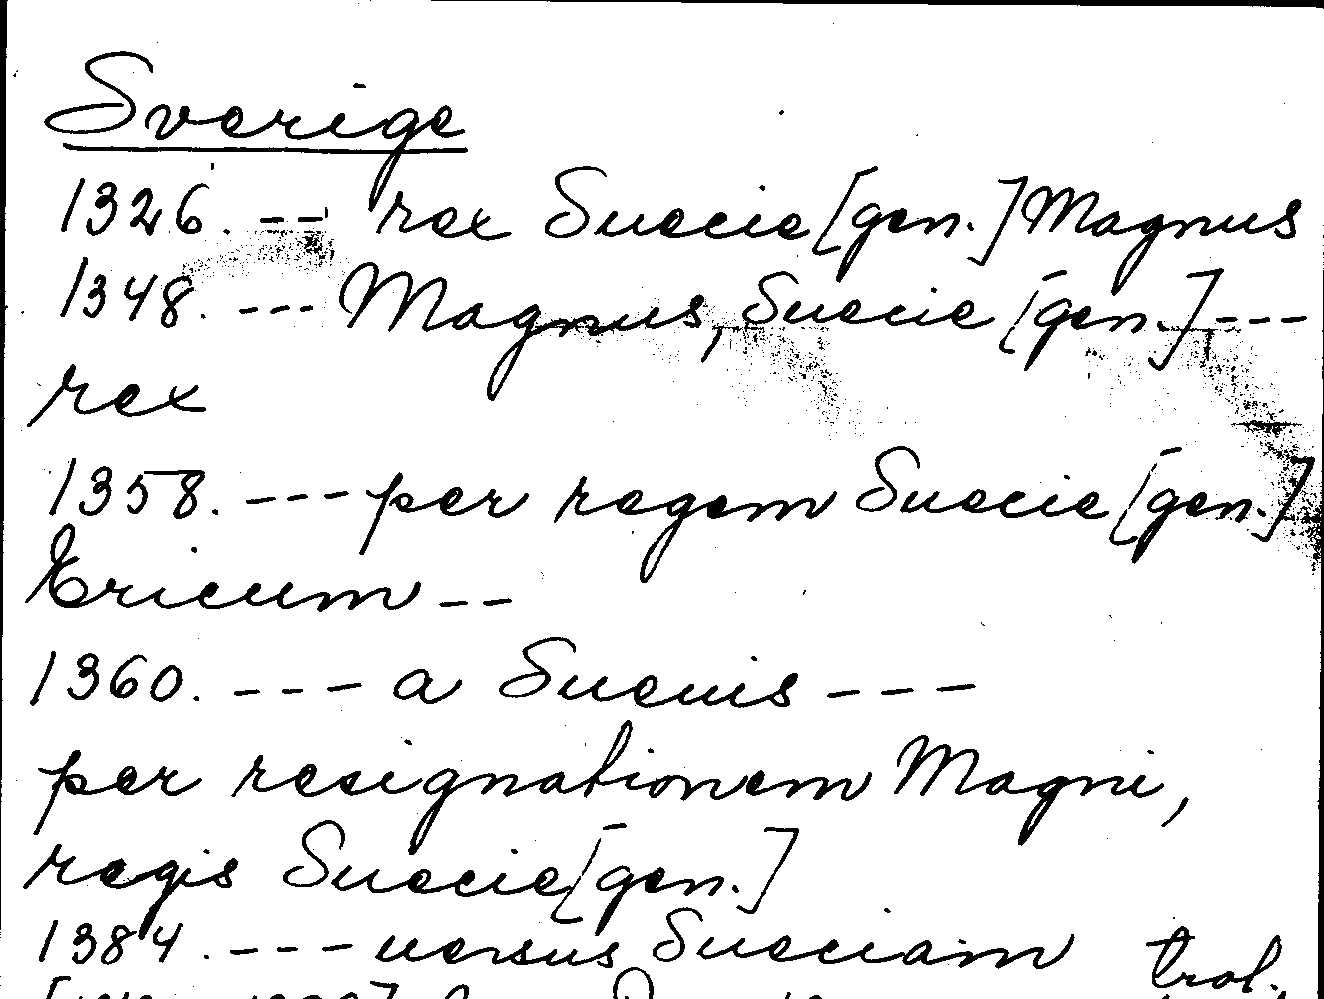 Sverige
1326. -- rex Suecie [gen.] Magnus
1348. --- Magnus, Suecie [gen.] ---
rex
1358. --- per regem Suecie [gen.]
Ericum --
1360. --- a Sueuis ---
per resignationem Magni,
regis Suecie [gen.]
1384. --- uersus Sueciam trol.